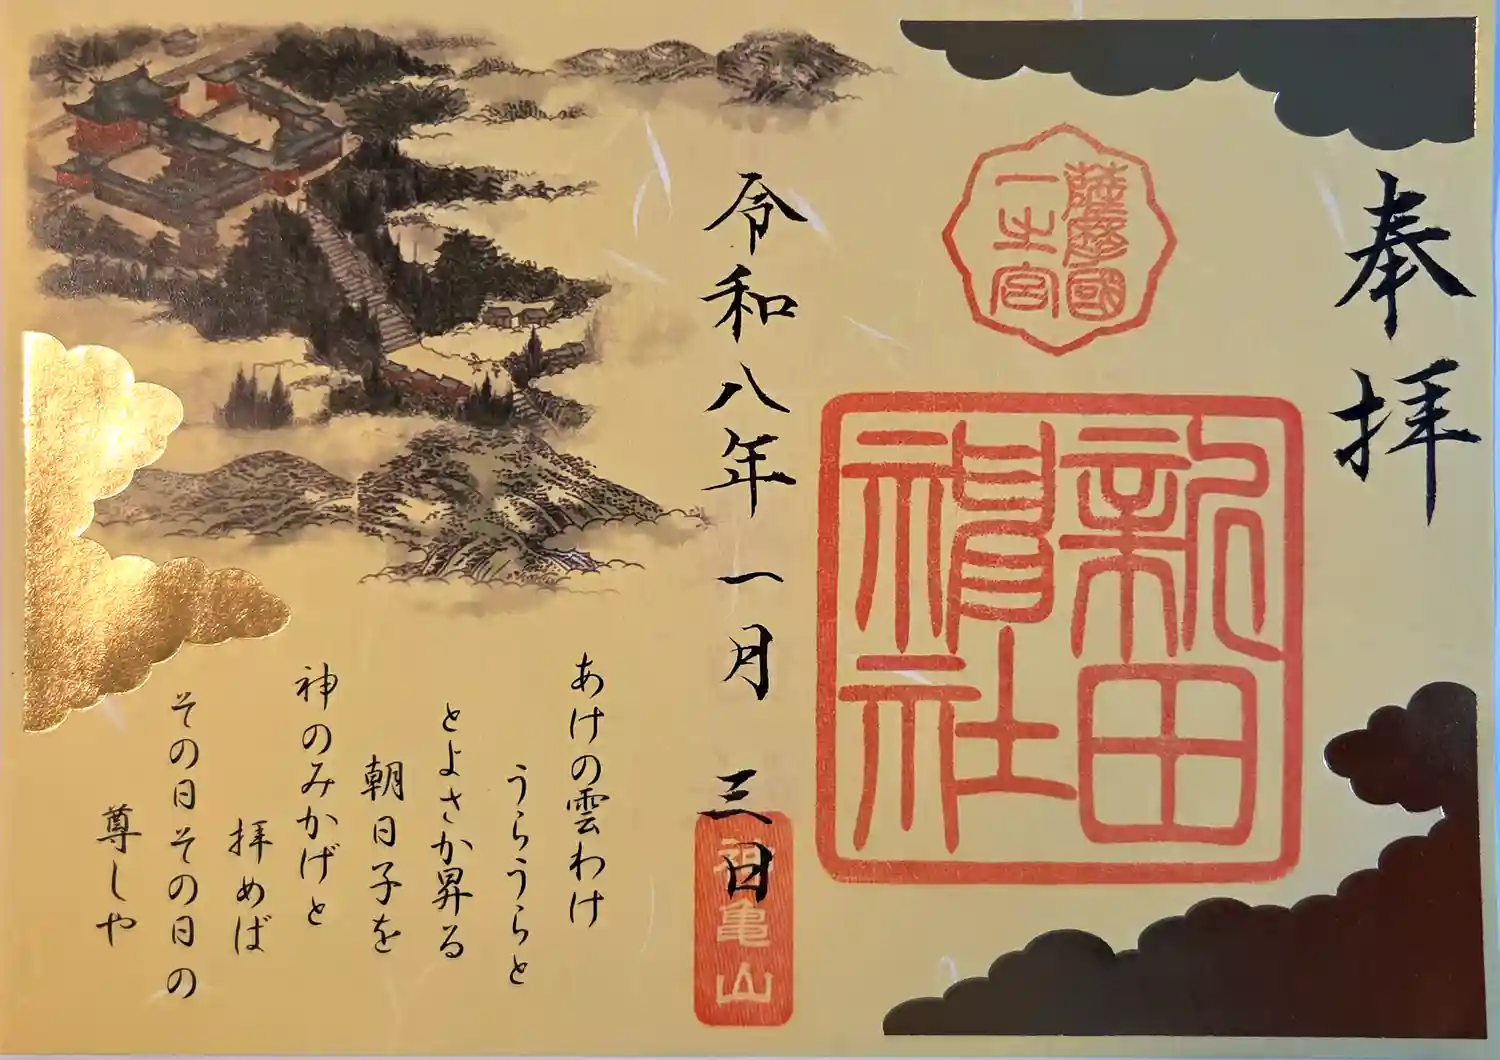 奉拝
薩摩國
一之宮
新田
神社
令和八年一月三日
神亀山
あけの雲わけ
うらうらと
とよさか昇る
朝日子を
神のみかげと
拝めば
その日その日の
尊しや